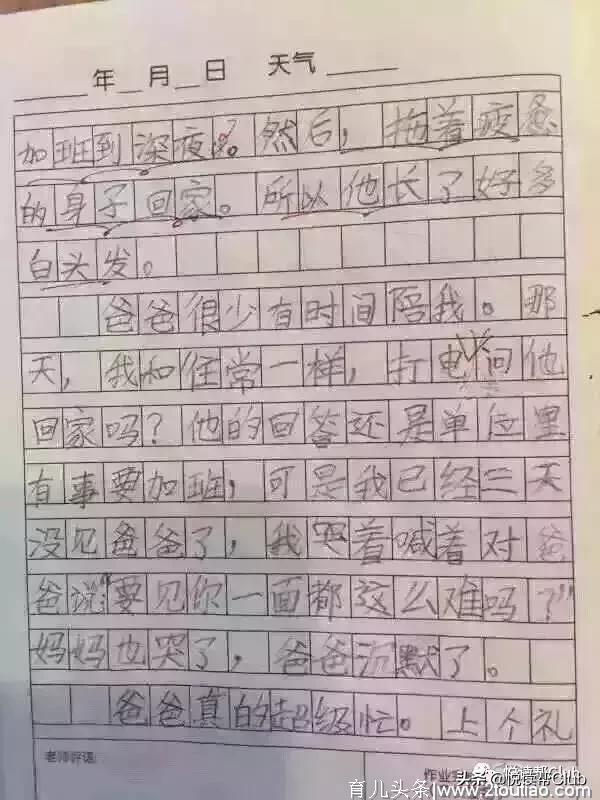 年 月 日 天气
加班到深夜。然后，拖着疲惫
的身子回家。所以他长了好多
白头发。
爸爸很少有时间陪我。那
天，我和往常一样，打电问他
回家吗？他的回答还是单位里
有事要加班，可是我已经三天
没见爸爸了，我哭着喊着对爸
爸说：“要见你一面都这么难吗？”
妈妈也哭了，爸爸沉默了。
爸爸真的超级忙。上个礼
老师评语:
作业
头条@悦读帮Club
悦读帮Club
育儿头条/www.21ouliao.com